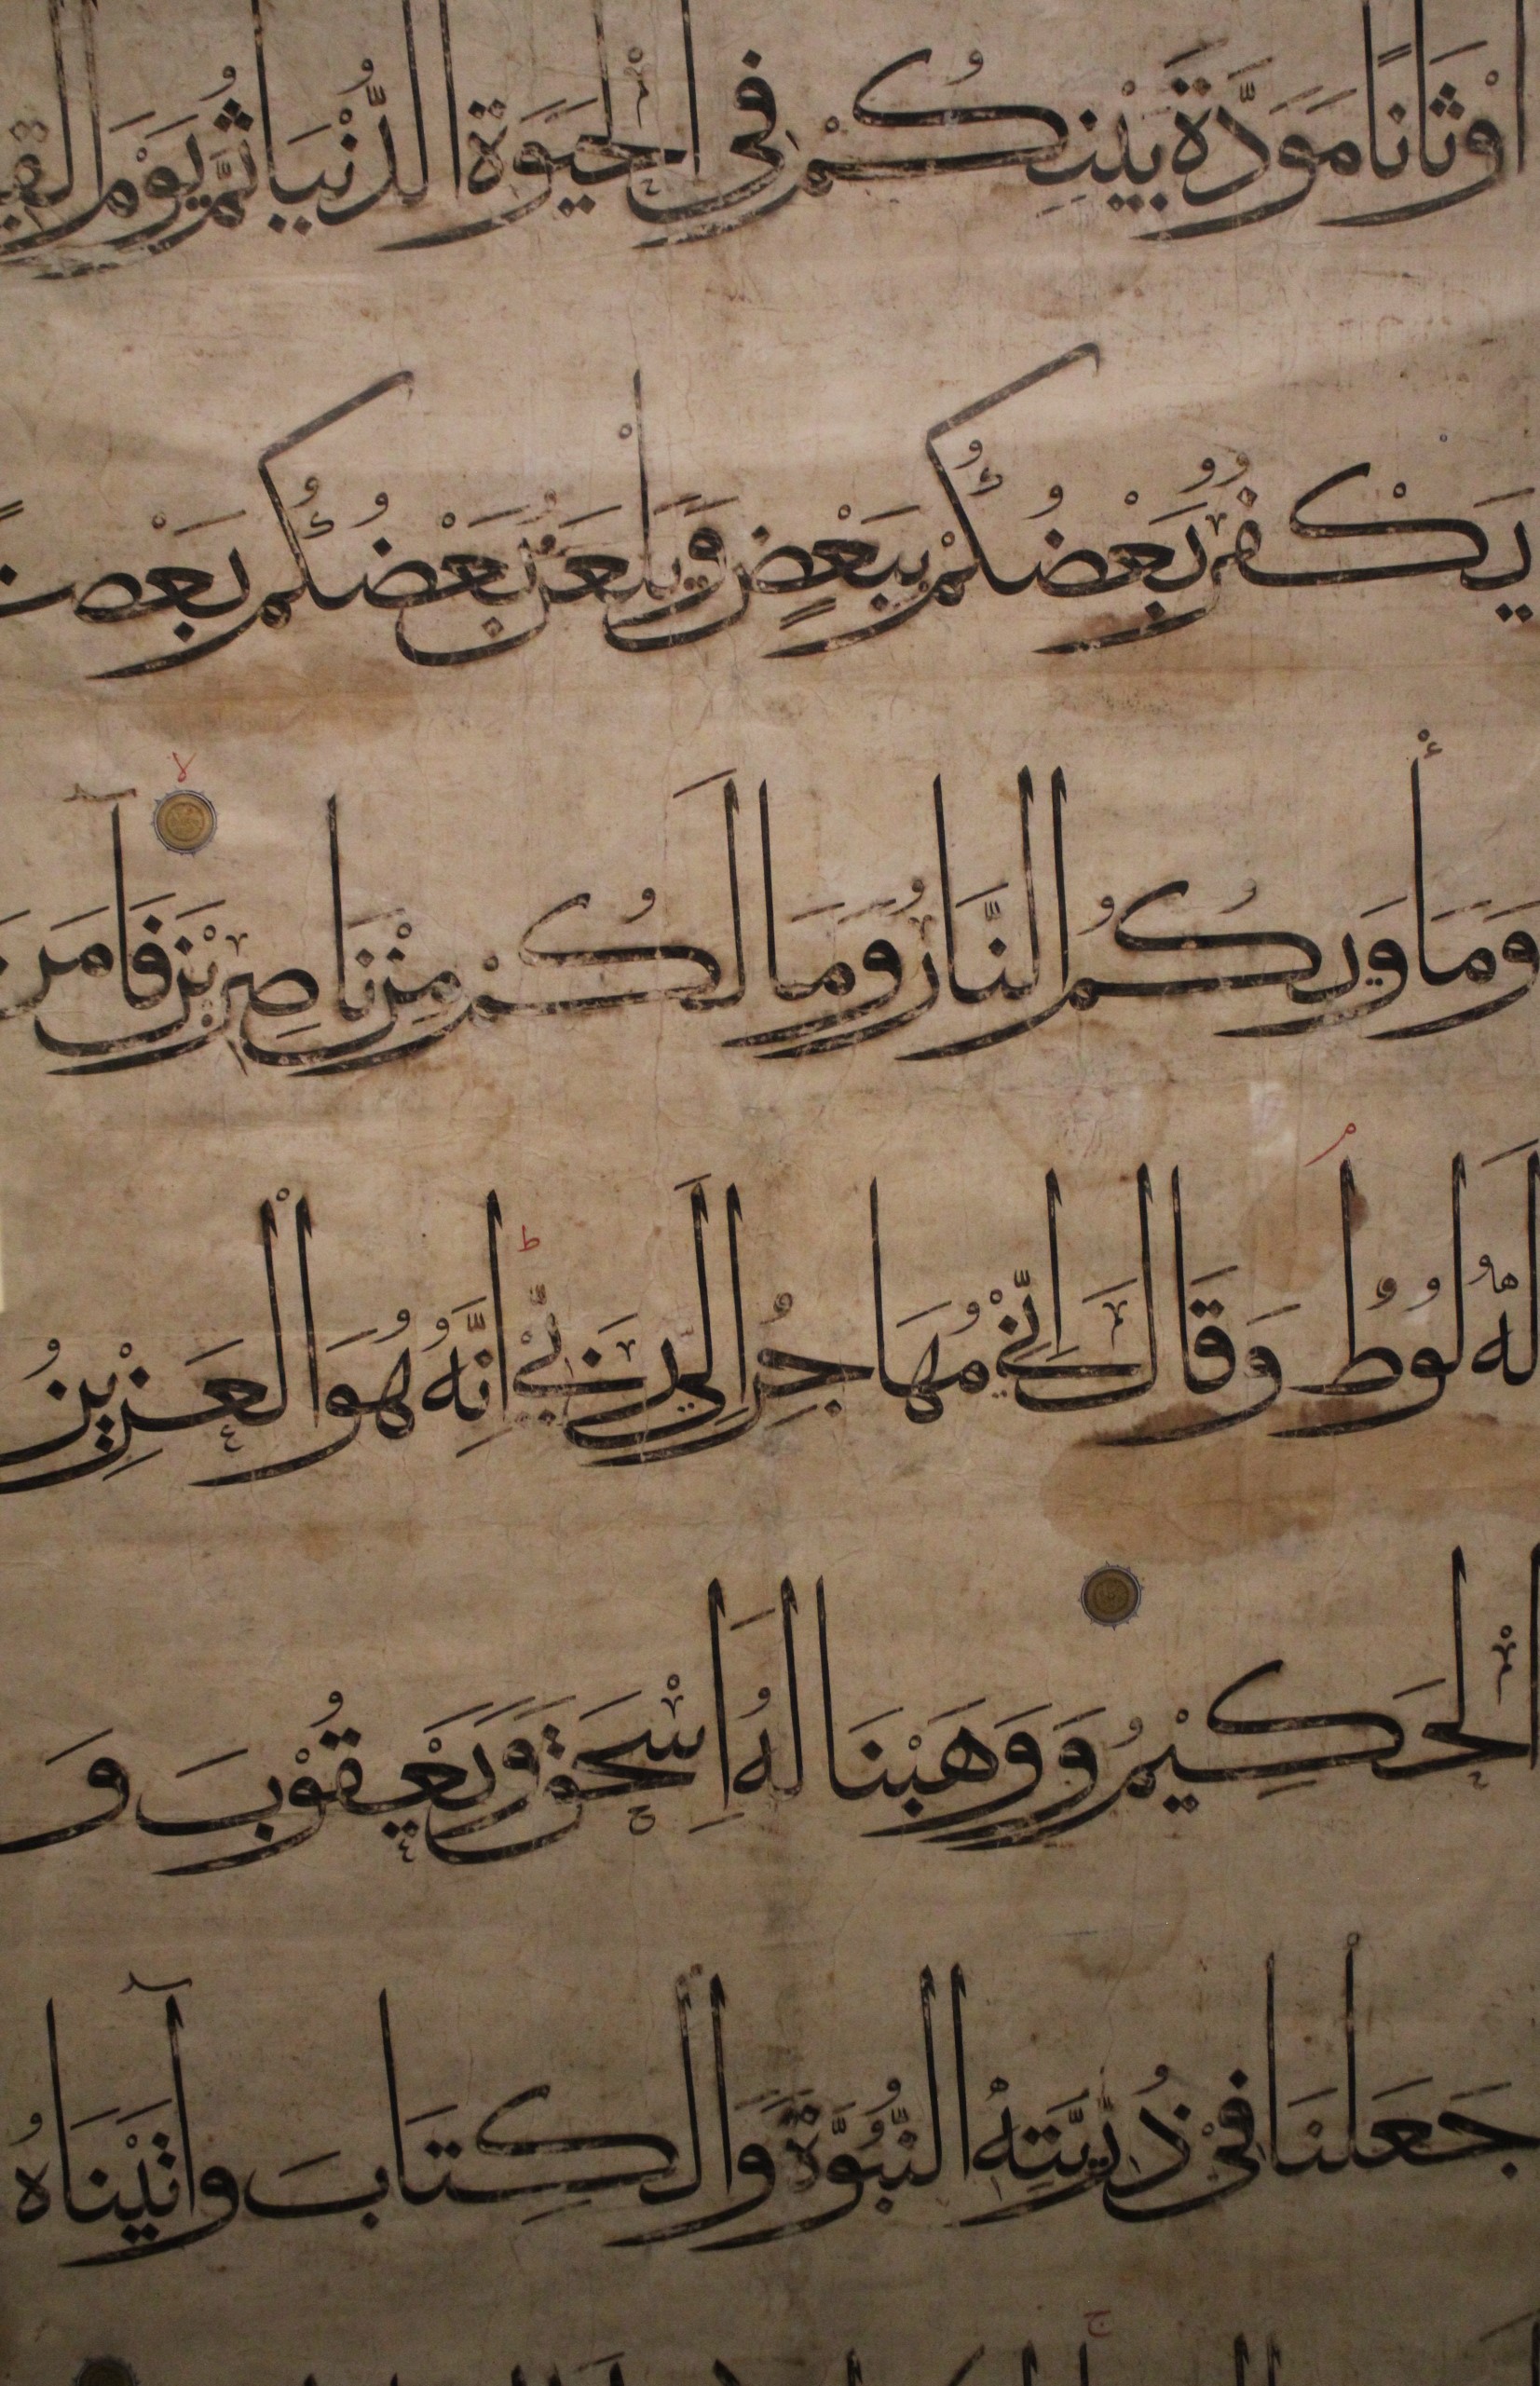 اَوْثَانًا مَوَدَّةَ بَيْنِكُمْ فِي الْحَيَوةِ الدُّنْيَا ثُمَّ يَوْمَ القي
يَكْفُرُ بَعْضُكُمْ بِبَعْضٍ وَّيَلْعَنُ بَعْضُكُم بَعْضً
وَمَأْوَيكُمُ النَّارُ وَمَا لَكُمْ مِنْ نَاصِرِيْنَ فَآمَنَ
لَهُ لُوطٌ وَقَالَ اِنِّيْ مُهَاجِرٌ اِلَى رَبِّيْ اِنَّهُ هُوَ الْعَزِيْزُ
الْحَكِيْمُ وَوَهَبْنَا لَهُ اِسْحَقَ وَيَعْقُوْبَ وَ
جَعَلْنَا فِيْ ذُرِّيَّتِهِ النُّبُوَّةَ وَالْكِتَابَ وَآتَيْنَاهُ